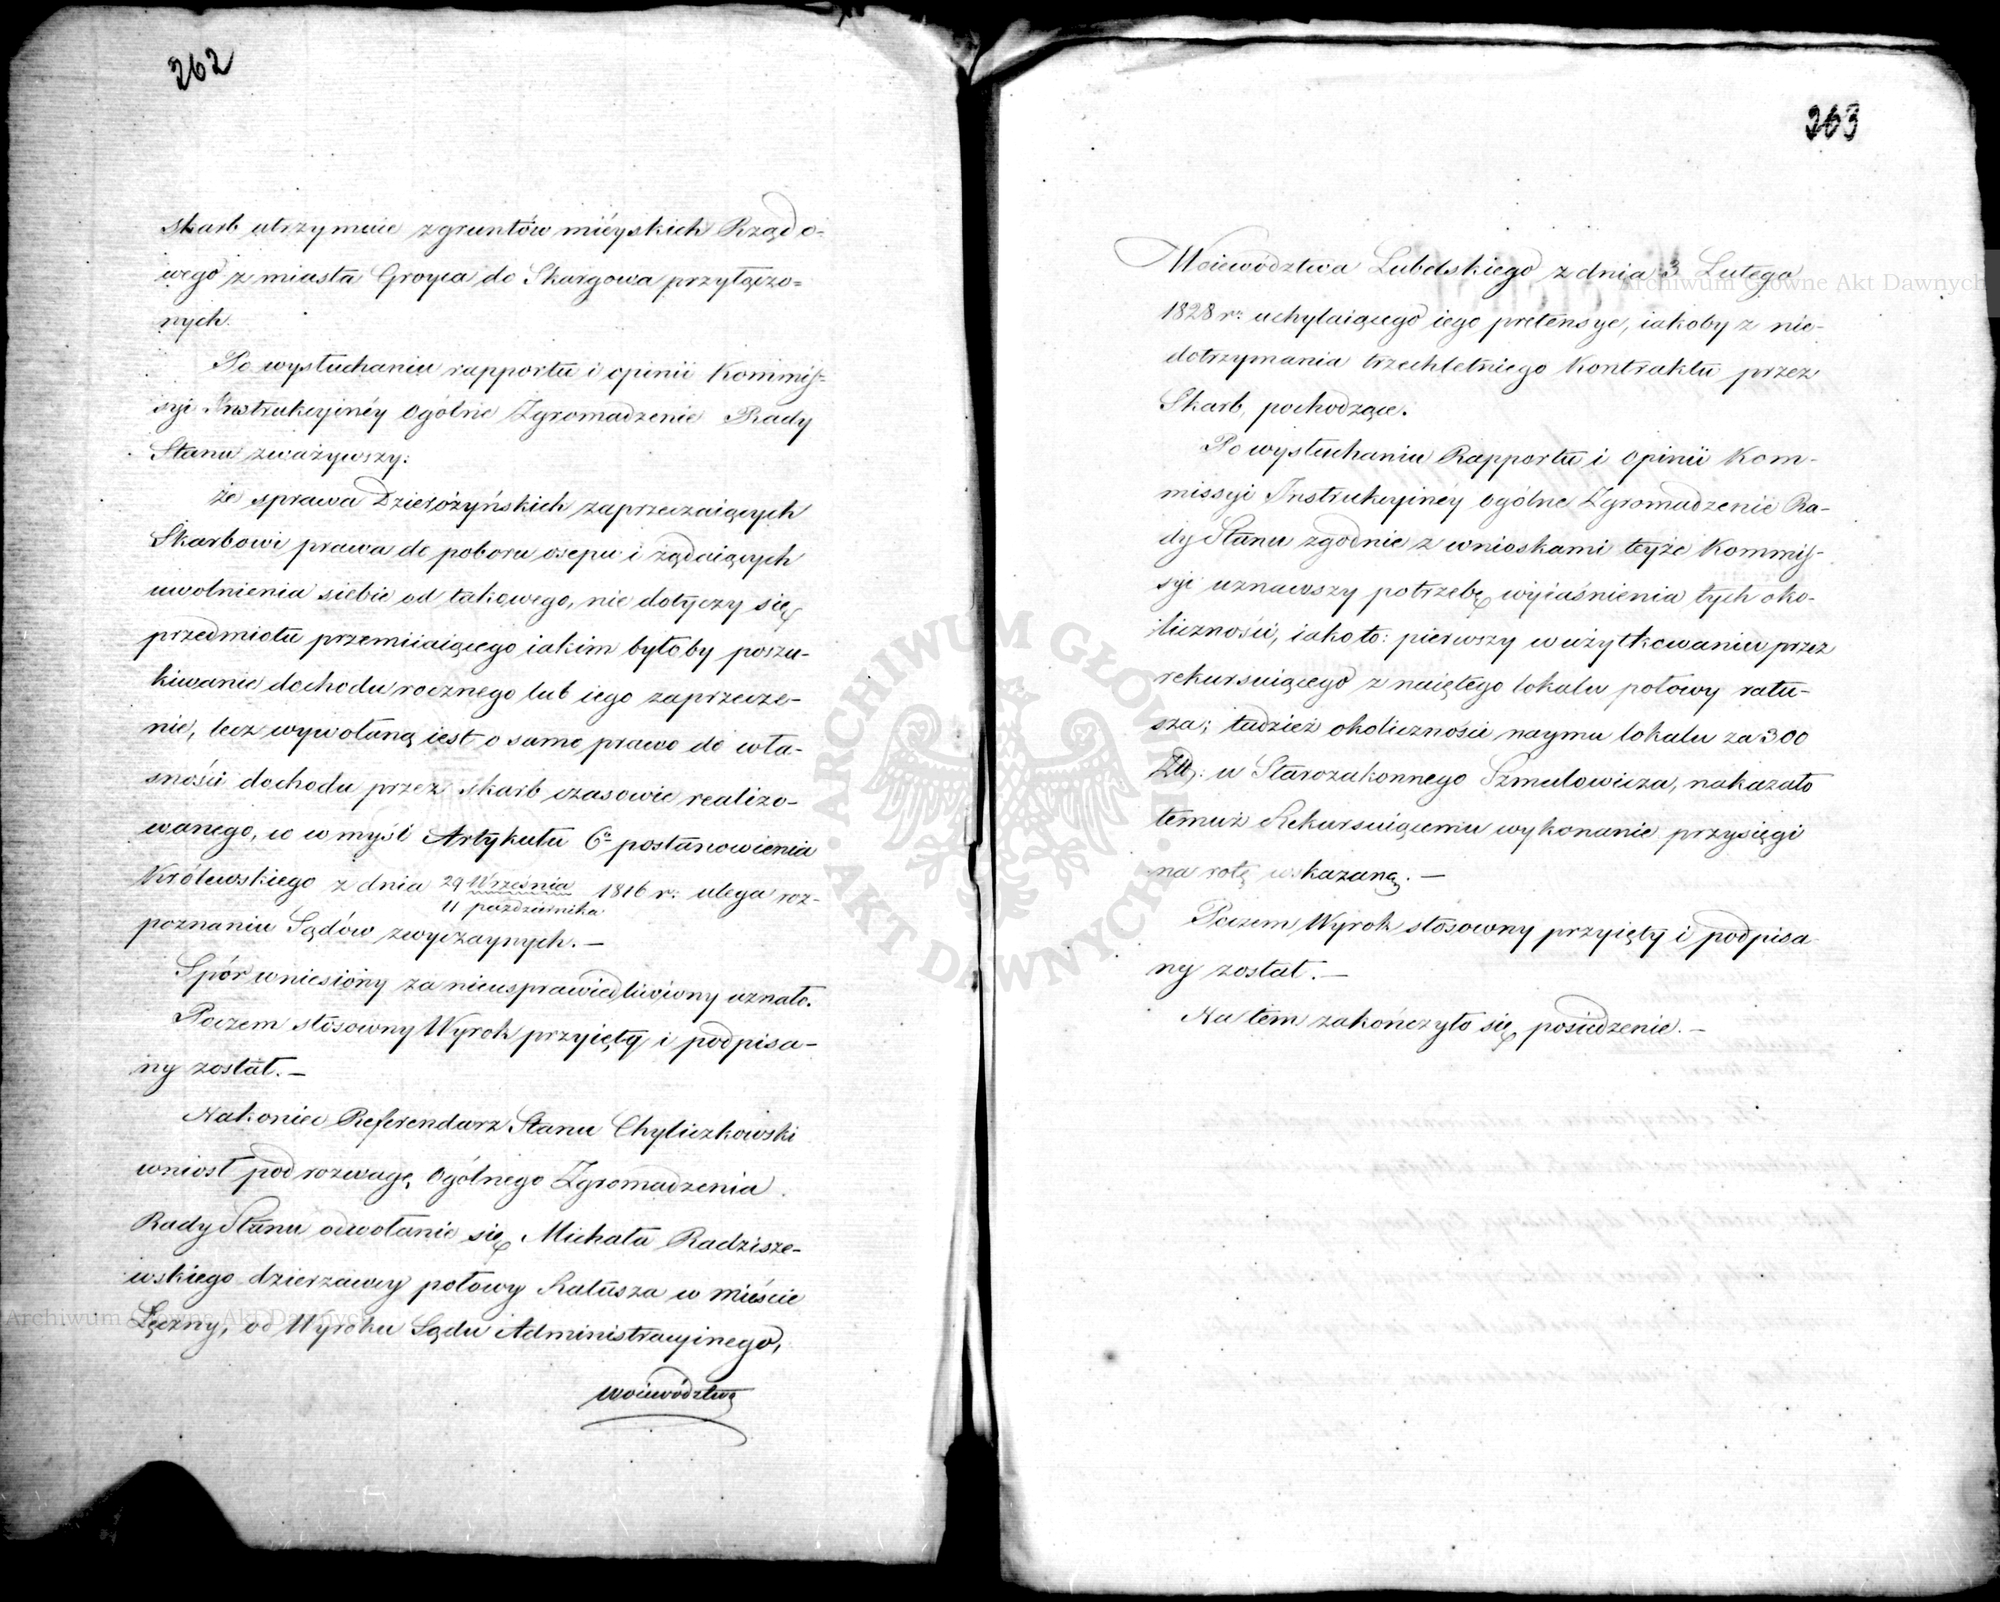 262
skarb utrzymuie z gruntów mieyskich Rządo-
wego z miasta Groyca do Skargowa przyłączo=
nych.
Po wysłuchaniu rapportu i opinii Kommis-
syi Instrukcyinéy Ogólne Zgromadzenie Rady
Stanu zważywszy:
że sprawa Dzierożyńskich zaprzeczaiących
Skarbowi prawa do poboru osepu i żądaiących
uwolnienia siebie od takowego, nie dotyczy się
przedmiotu przemiiaiącego iakim byłoby poszu-
kiwanie dochodu rocznego lub iego zaprzecze-
nie, lecz wywołaną iest o samo prawo do wła-
sności dochodu przez skarb czasowie realizo-
wanego, co w myśl Artykułu 6o postanowienia
Królewskiego z dnia 29 Września 1816 r: ulega roz-
11 października
poznaniu Sądów zwyczaynych. —
Spór wniesiony za nieusprawiedliwiony uznało.
Poczem stosowny Wyrok przyięty i podpisa-
ny został. —
Nakoniec Referendarz Stanu Chyliczkowski
wniosł pod rozwagę Ogólnego Zgromadzenia
Rady Stanu odwołanie się Michała Radzisze-
wskiego dzierzawcy połowy Ratusza w mieście
Łęczny, od Wyroku Sądu Administracyinego,
Woiewództwa
263
Woiewództwa Lubelskiego z dnia 3 Lutego
1828 r: uchylaiącego iego pretensye, iakoby z nie-
dotrzymania trzechletniego Kontraktu przez
Skarb, pochodzące.
Po wysłuchaniu Rapportu i Opinii Kom-
missyi Instrukcyinéy Ogólne Zgromadzenie Ra-
dy Stanu zgodnie z wnioskami teyże Kommis-
syi uznawszy potrzebę wyiaśnienia tych oko-
liczności, iako to: pierwszy w użytkowaniu przez
rekursuiącego z naiętego lokalu połowy ratu-
sza; tudzież okoliczności naymu lokalu za 300
Złł: u Starozakonnego Szmulowicza, nakazało
temuż Rekursuiącemu wykonanie przysięgi
na rotę wskazaną. —
Poczem Wyrok stosowny przyięty i podpisa-
ny został. —
Na tem zakończyło się posiedzenie. —
Archiwum Główne Akt Dawnych
Archiwum Główne Akt Dawnych
ARCHIWUM GŁÓWNE · AKT DAWNYCH ·